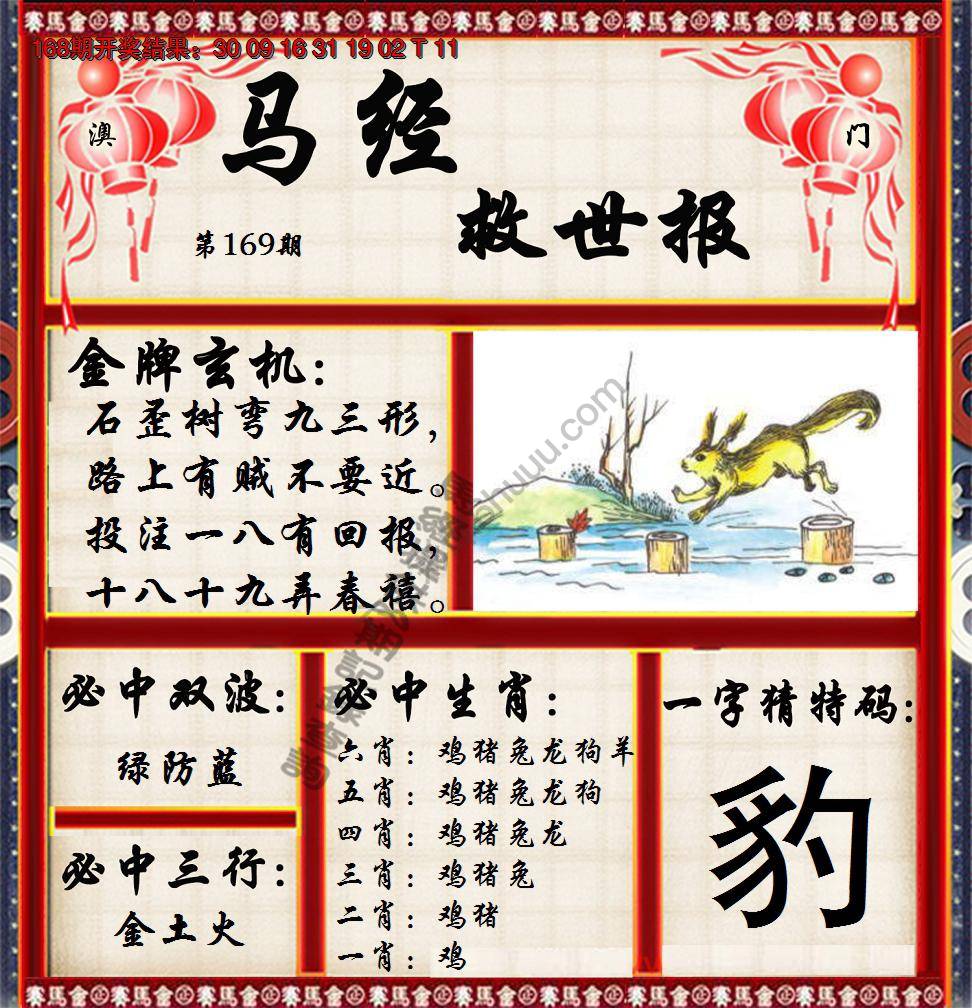 168期开奖结果：30 09 16 31 19 02 T 11
澳
门
马经
救世报
第169期
金牌玄机：
石歪树弯九三形，
路上有贼不要近。
投注一八有回报，
十八十九弄春禧。
必中双波：
绿防蓝
必中三行：
金土火
必中生肖：
六肖：鸡猪兔龙狗羊
五肖：鸡猪兔龙狗
四肖：鸡猪兔龙
三肖：鸡猪兔
二肖：鸡猪
一肖：鸡
一字猜特码：
豹